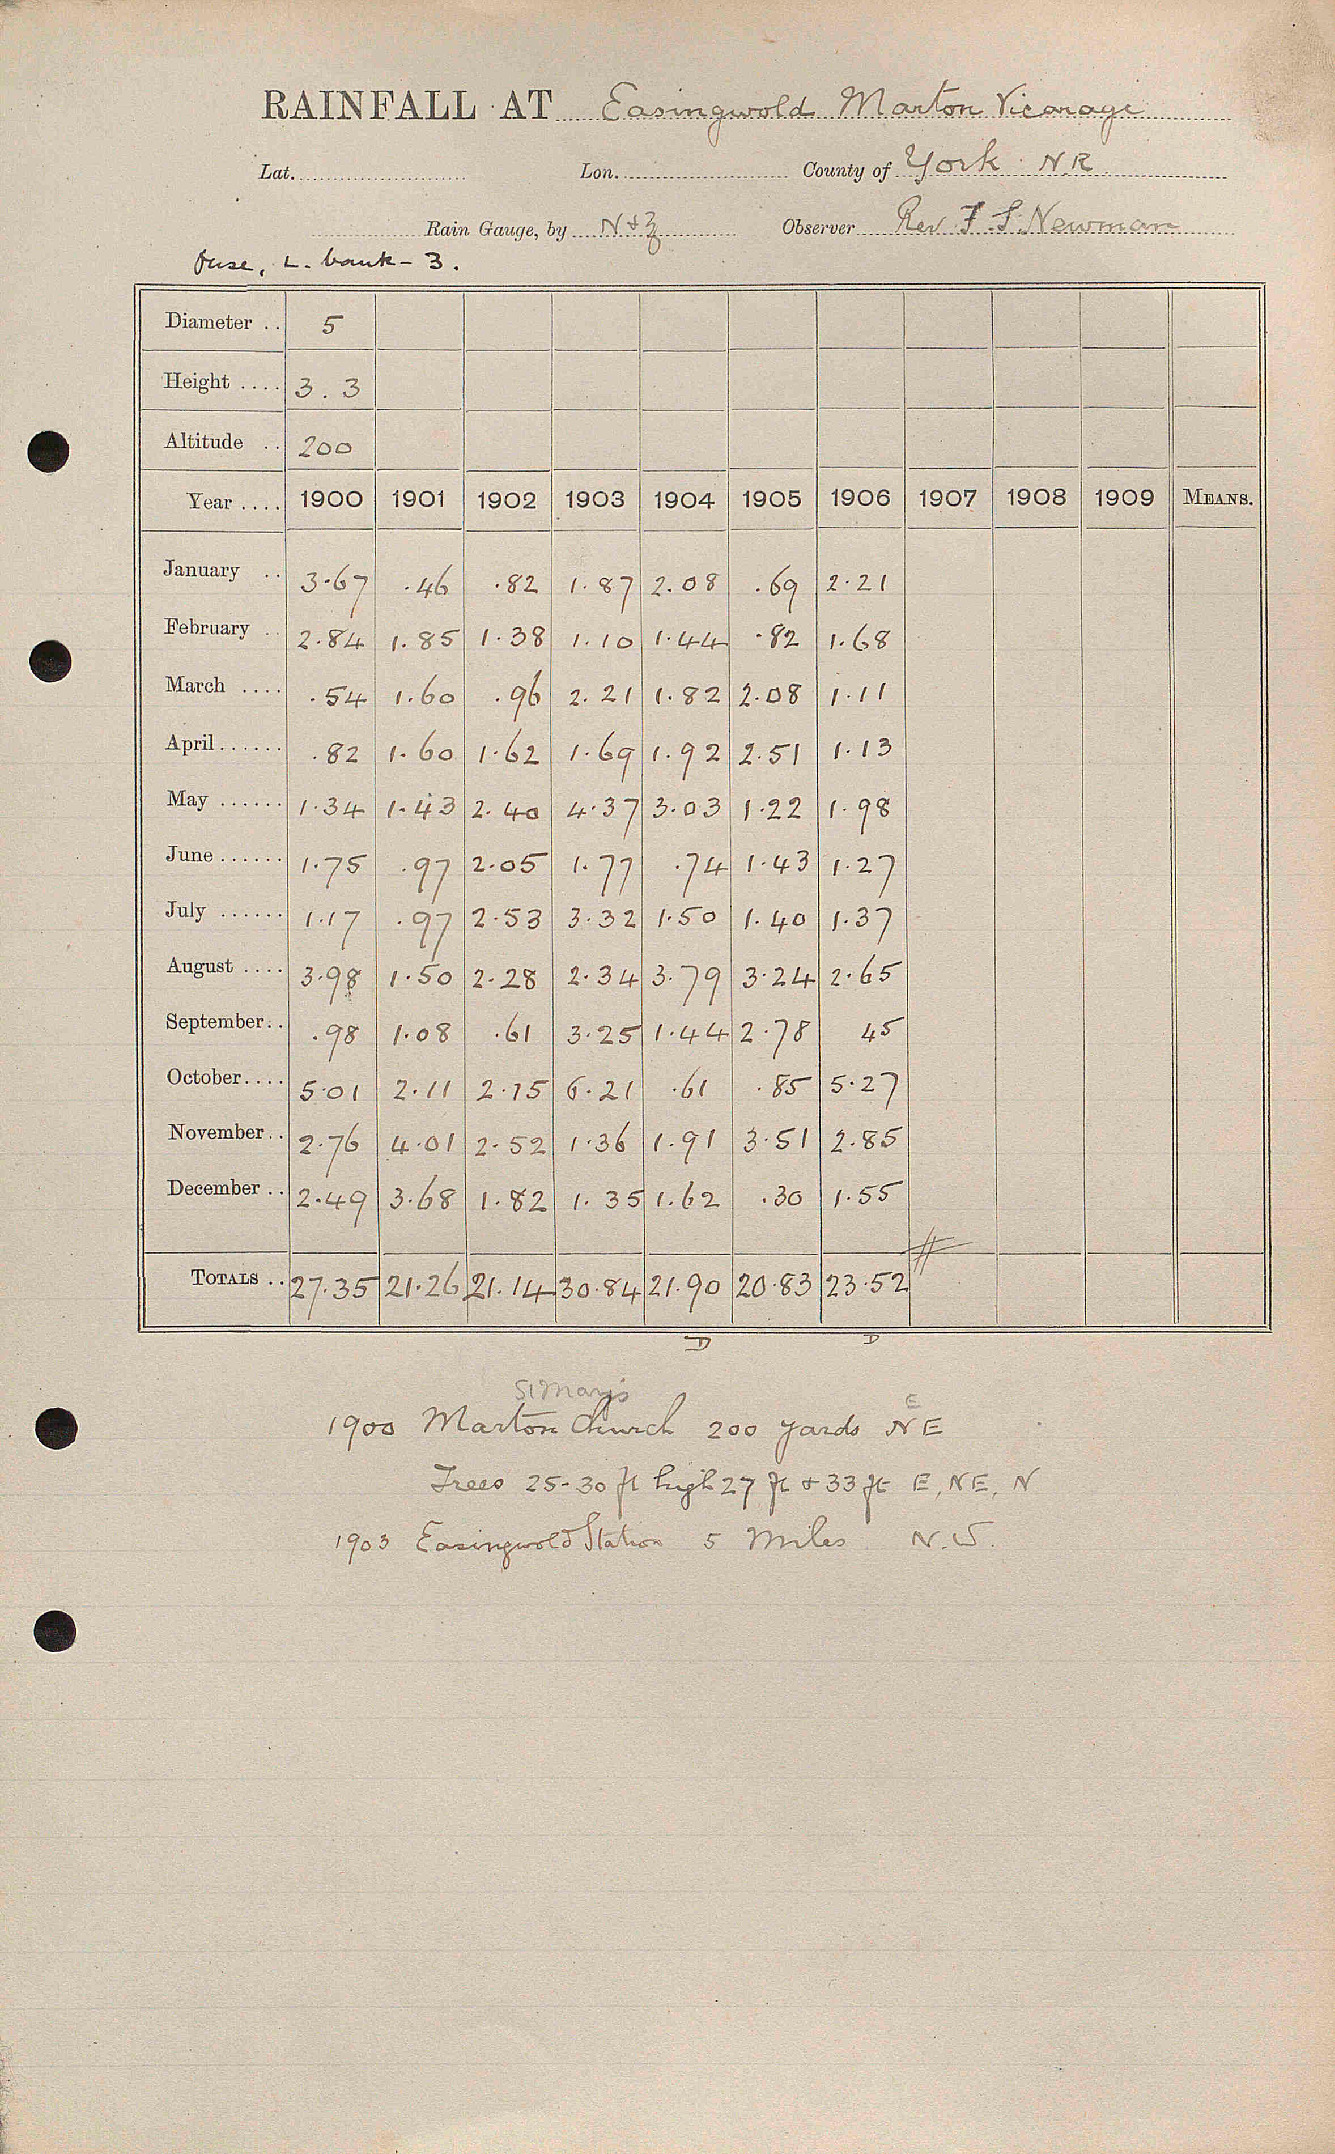 RAINFALL AT Easingwold Marton Vicarage
Lat. Lon. County of York N.R
Rain Gauge, by N & Z Observer Rev. F. S. Newman
Ouse, L. bank - 3.
Diameter .. 5
Height .... 3 . 3
Altitude .. 200
Year .... 1900 1901 1902 1903 1904 1905 1906 1907 1908 1909 MEANS.
January .. 3.67 .46 .82 1.87 2.08 .69 2.21
February .. 2.84 1.85 1.38 1.10 1.44 .82 1.68
March .... .54 1.60 .96 2.21 1.82 2.08 1.11
April ...... .82 1.60 1.62 1.69 1.92 2.51 1.13
May ...... 1.34 1.43 2.40 4.37 3.03 1.22 1.98
June ...... 1.75 .97 2.05 1.77 .74 1.43 1.27
July ...... 1.17 .97 2.53 3.32 1.50 1.40 1.37
August .... 3.98 1.50 2.28 2.34 3.79 3.24 2.65
September .. .98 1.08 .61 3.25 1.44 2.78 45
October .... 5.01 2.11 2.15 6.21 .61 .85 5.27
November .. 2.76 4.01 2.52 1.36 1.91 3.51 2.85
December .. 2.49 3.68 1.82 1.35 1.62 .30 1.55
TOTALS .. 27.35 21.26 21.14 30.84 21.90 20.83 23.52
D D
St Mary's
E
1900 Marton Church 200 yards NE
Trees 25-30 ft high 27 ft & 33 ft E, NE, N
1903 Easingwold Station 5 Miles N.W.